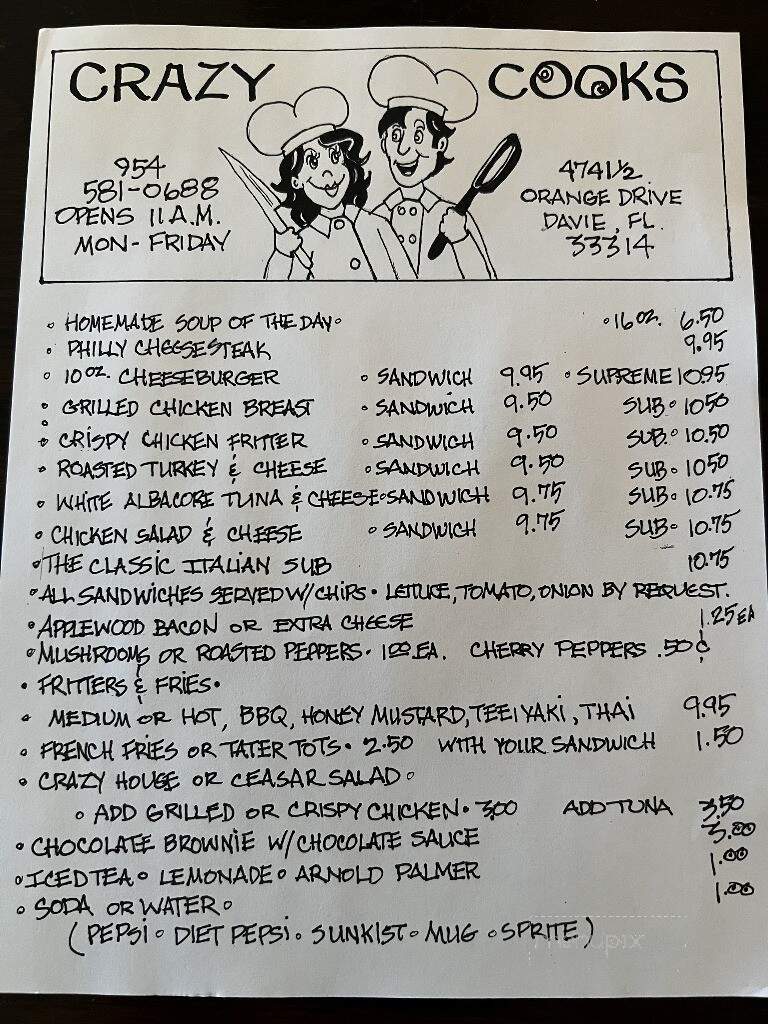 CRAZY COOKS
954
581-0688
OPENS 11 A.M.
MON - FRIDAY
4741½
ORANGE DRIVE
DAVIE, FL.
33314
• HOMEMADE SOUP OF THE DAY • • 16 OZ. 6.50
• PHILLY CHEESESTEAK 9.95
• 10 OZ. CHEESEBURGER • SANDWICH 9.95 • SUPREME 10.95
• GRILLED CHICKEN BREAST • SANDWICH 9.50 SUB • 10.50
• CRISPY CHICKEN FRITTER • SANDWICH 9.50 SUB • 10.50
• ROASTED TURKEY & CHEESE • SANDWICH 9.50 SUB • 10.50
• WHITE ALBACORE TUNA & CHEESE • SANDWICH 9.75 SUB • 10.75
• CHICKEN SALAD & CHEESE • SANDWICH 9.75 SUB • 10.75
• THE CLASSIC ITALIAN SUB 10.75
• ALL SANDWICHES SERVED W/ CHIPS • LETTUCE, TOMATO, ONION BY REQUEST.
• APPLEWOOD BACON OR EXTRA CHEESE 1.25 EA
• MUSHROOMS OR ROASTED PEPPERS • 1.00 EA. CHERRY PEPPERS .50¢
• FRITTERS & FRIES •
• MEDIUM OR HOT, BBQ, HONEY MUSTARD, TEEIYAKI, THAI 9.95
• FRENCH FRIES OR TATER TOTS • 2.50 WITH YOUR SANDWICH 1.50
• CRAZY HOUSE OR CEASAR SALAD •
• ADD GRILLED OR CRISPY CHICKEN • 3.00 ADD TUNA 3.50
• CHOCOLATE BROWNIE W/ CHOCOLATE SAUCE 3.00
• ICED TEA • LEMONADE • ARNOLD PALMER 1.00
• SODA OR WATER • 1.00
(PEPSI • DIET PEPSI • SUNKIST • MUG • SPRITE)
menupix